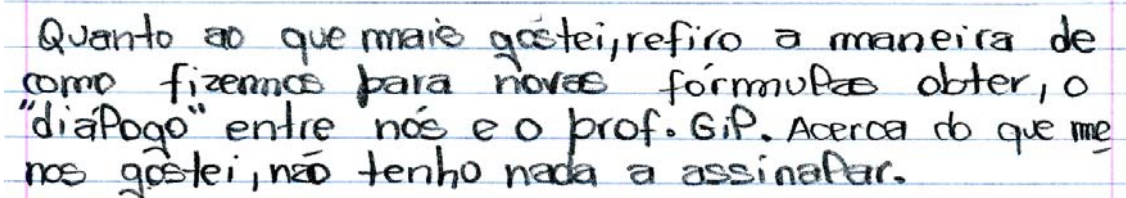 Quanto ao que mais gostei, refiro a maneira de
como fizemos para novas fórmulas obter, o
"diálogo" entre nós e o prof. Gil. Acerca do que me
nos gostei, não tenho nada a assinalar.